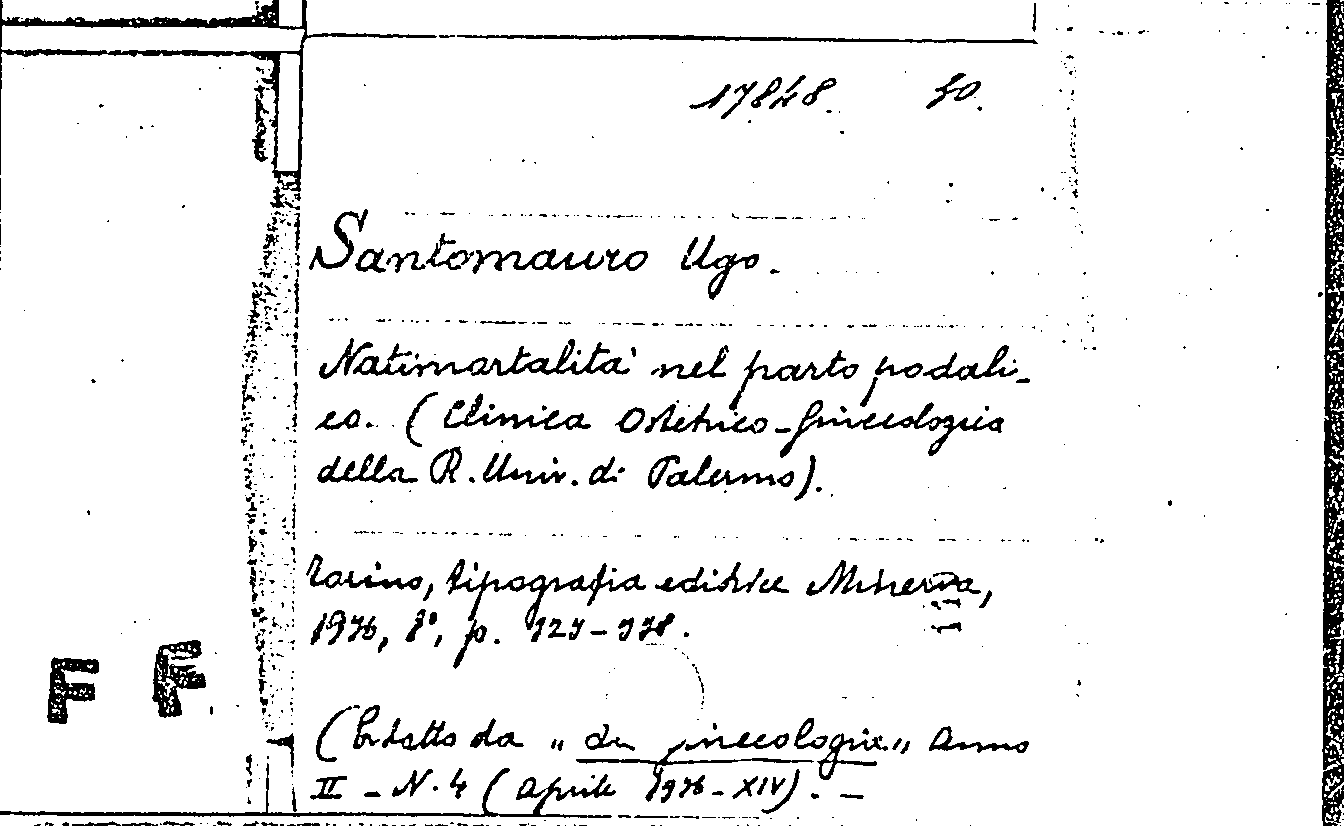 17848. 50.
Santomauro Ugo.
Natimortalità nel parto podali-
co. (Clinica Ostetrico-ginecologica
della R. Univ. di Palermo).
Torino, tipografia editrice Minerva,
1936, 8°, p.
(Estratto da „ La ginecologia „ Anno
II - N. 4 (Aprile 1936 - XIV). -
F F